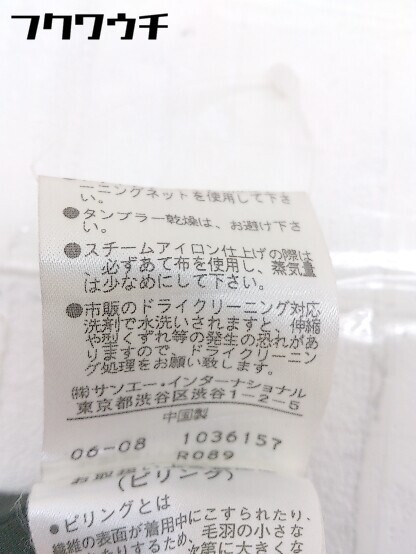 フクワウチ
ーニングネットを使用して下さ
い。
●タンブラー乾燥は、お避け下さ
い。
●スチームアイロン仕上げの際は
必ずあて布を使用し、蒸気量
は少なめにして下さい。
●市販のドライクリーニング対応
洗剤で水洗いされますと、伸縮
や型くずれ等の発生の恐れがあ
りますので、ドライクリーニン
グ処理をお願い致します。
㈱サンエー・インターナショナル
東京都渋谷区渋谷1-2-5
中国製
06-08 1036157
R089
(ピリング)
●ピリングとは
繊維の表面が着用中にこすられたり、
毛羽の小さな
次第に大きくな